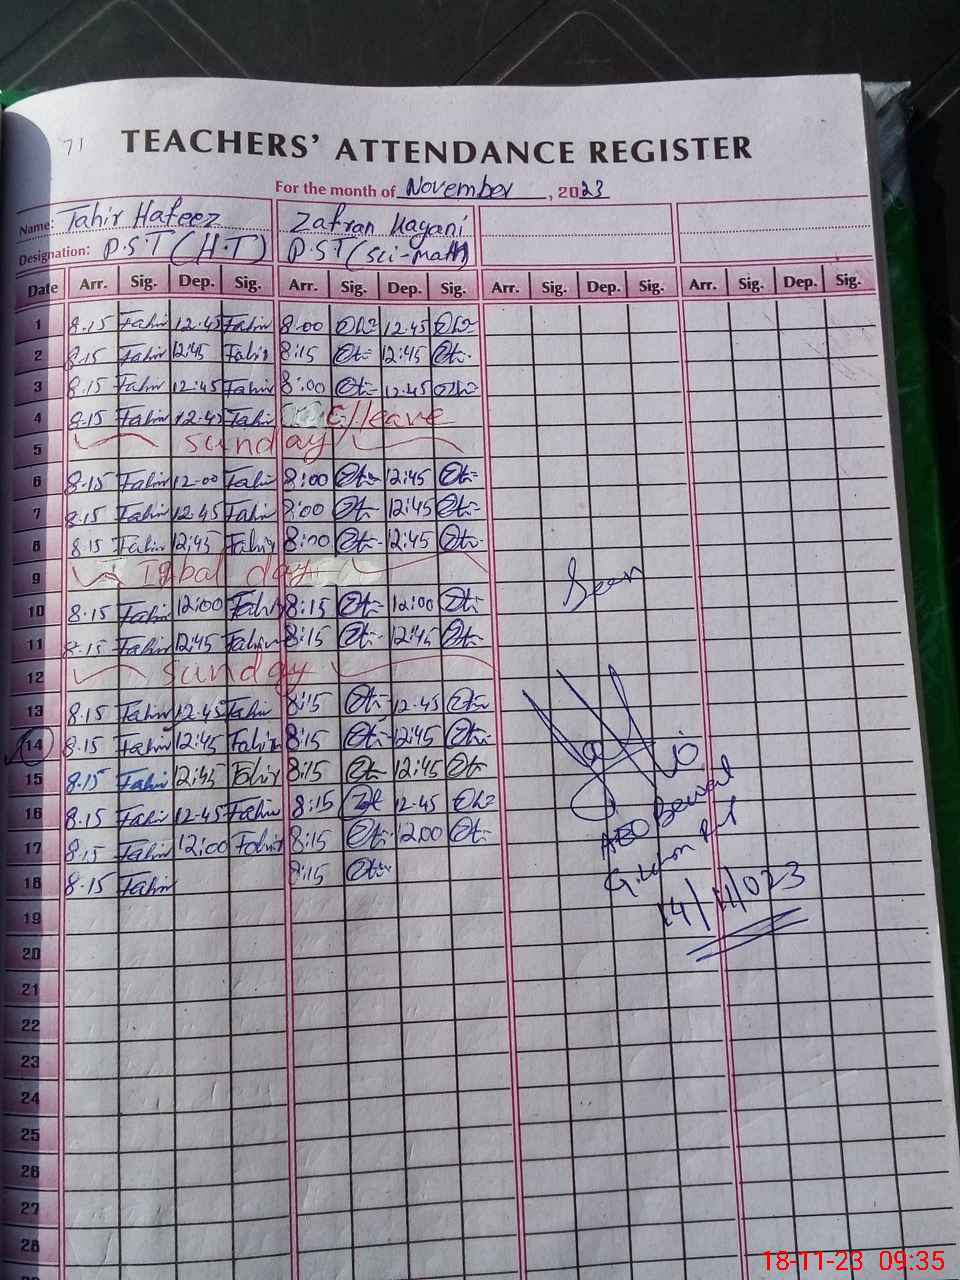 71
TEACHERS' ATTENDANCE REGISTER
For the month of November, 2023
Name: Tahir Hafeez Zafran Kayani
Designation: P.S.T (H.T) P.S.T (Sci-math)
Date Arr. Sig. Dep. Sig. Arr. Sig. Dep. Sig. Arr. Sig. Dep. Sig. Arr. Sig. Dep. Sig.
1 8.15 Tahir 12.45 Tahir 8:00 12.45
2 8.15 Tahir 12:45 Tahir 8:15 12:45
3 8.15 Tahir 12:45 Tahir 8:00 12.45
4 8.15 Tahir 12.45 Tahir C/leave
5 Sunday
6 8.15 Tahir 12-00 Tahir 8:00 12:45
7 8.15 Tahir 12.45 Tahir 8:00 12:45
8 8.15 Tahir 12:45 Tahir 8:00 12:45
9 Iqbal day
Seen
10 8.15 Tahir 12:00 Tahir 8:15 12:00
11 8.15 Tahir 12:45 Tahir 8:15 12:45
12 Sunday
13 8.15 Tahir 12.45 Tahir 8:15 12.45
14 8.15 Tahir 12:45 Tahir 8:15 12:45
15 8.15 Tahir 12:45 Tahir 8:15 12:45
16 8.15 Tahir 12-45 Tahir 8:15 12.45
17 8.15 Tahir 12:00 Tahir 8:15 12:00
AEO Bewal
18 8.15 Tahir 8:15
14/11/023
19
20
21
22
23
24
25
26
27
28
18-11-23 09:35